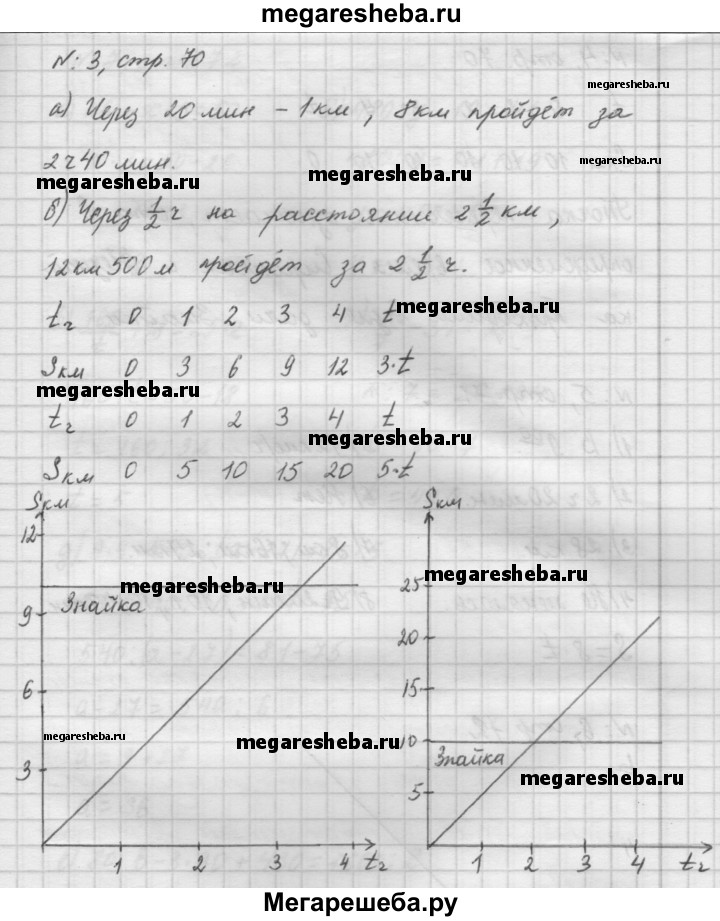 megaresheba.ru
N: 3, стр. 70
megaresheba.ru
а) Через 20 мин – 1 км, 8 км пройдёт за
2 ч 40 мин.
megaresheba.ru
megaresheba.ru
megaresheba.ru
б) Через 1/2 ч на расстоянии 2 1/2 км,
12 км 500 м пройдёт за 2 1/2 ч.
t ч 0 1 2 3 4 t
megaresheba.ru
S км 0 3 6 9 12 3·t
megaresheba.ru
t ч 0 1 2 3 4 t
megaresheba.ru
S км 0 5 10 15 20 5·t
S км
12
9
6
3
Знайка
1 2 3 4 t ч
S км
25
20
15
10
5
Знайка
1 2 3 4 t ч
megaresheba.ru
megaresheba.ru
megaresheba.ru
megaresheba.ru
megaresheba.ru
Мегарешеба.ру